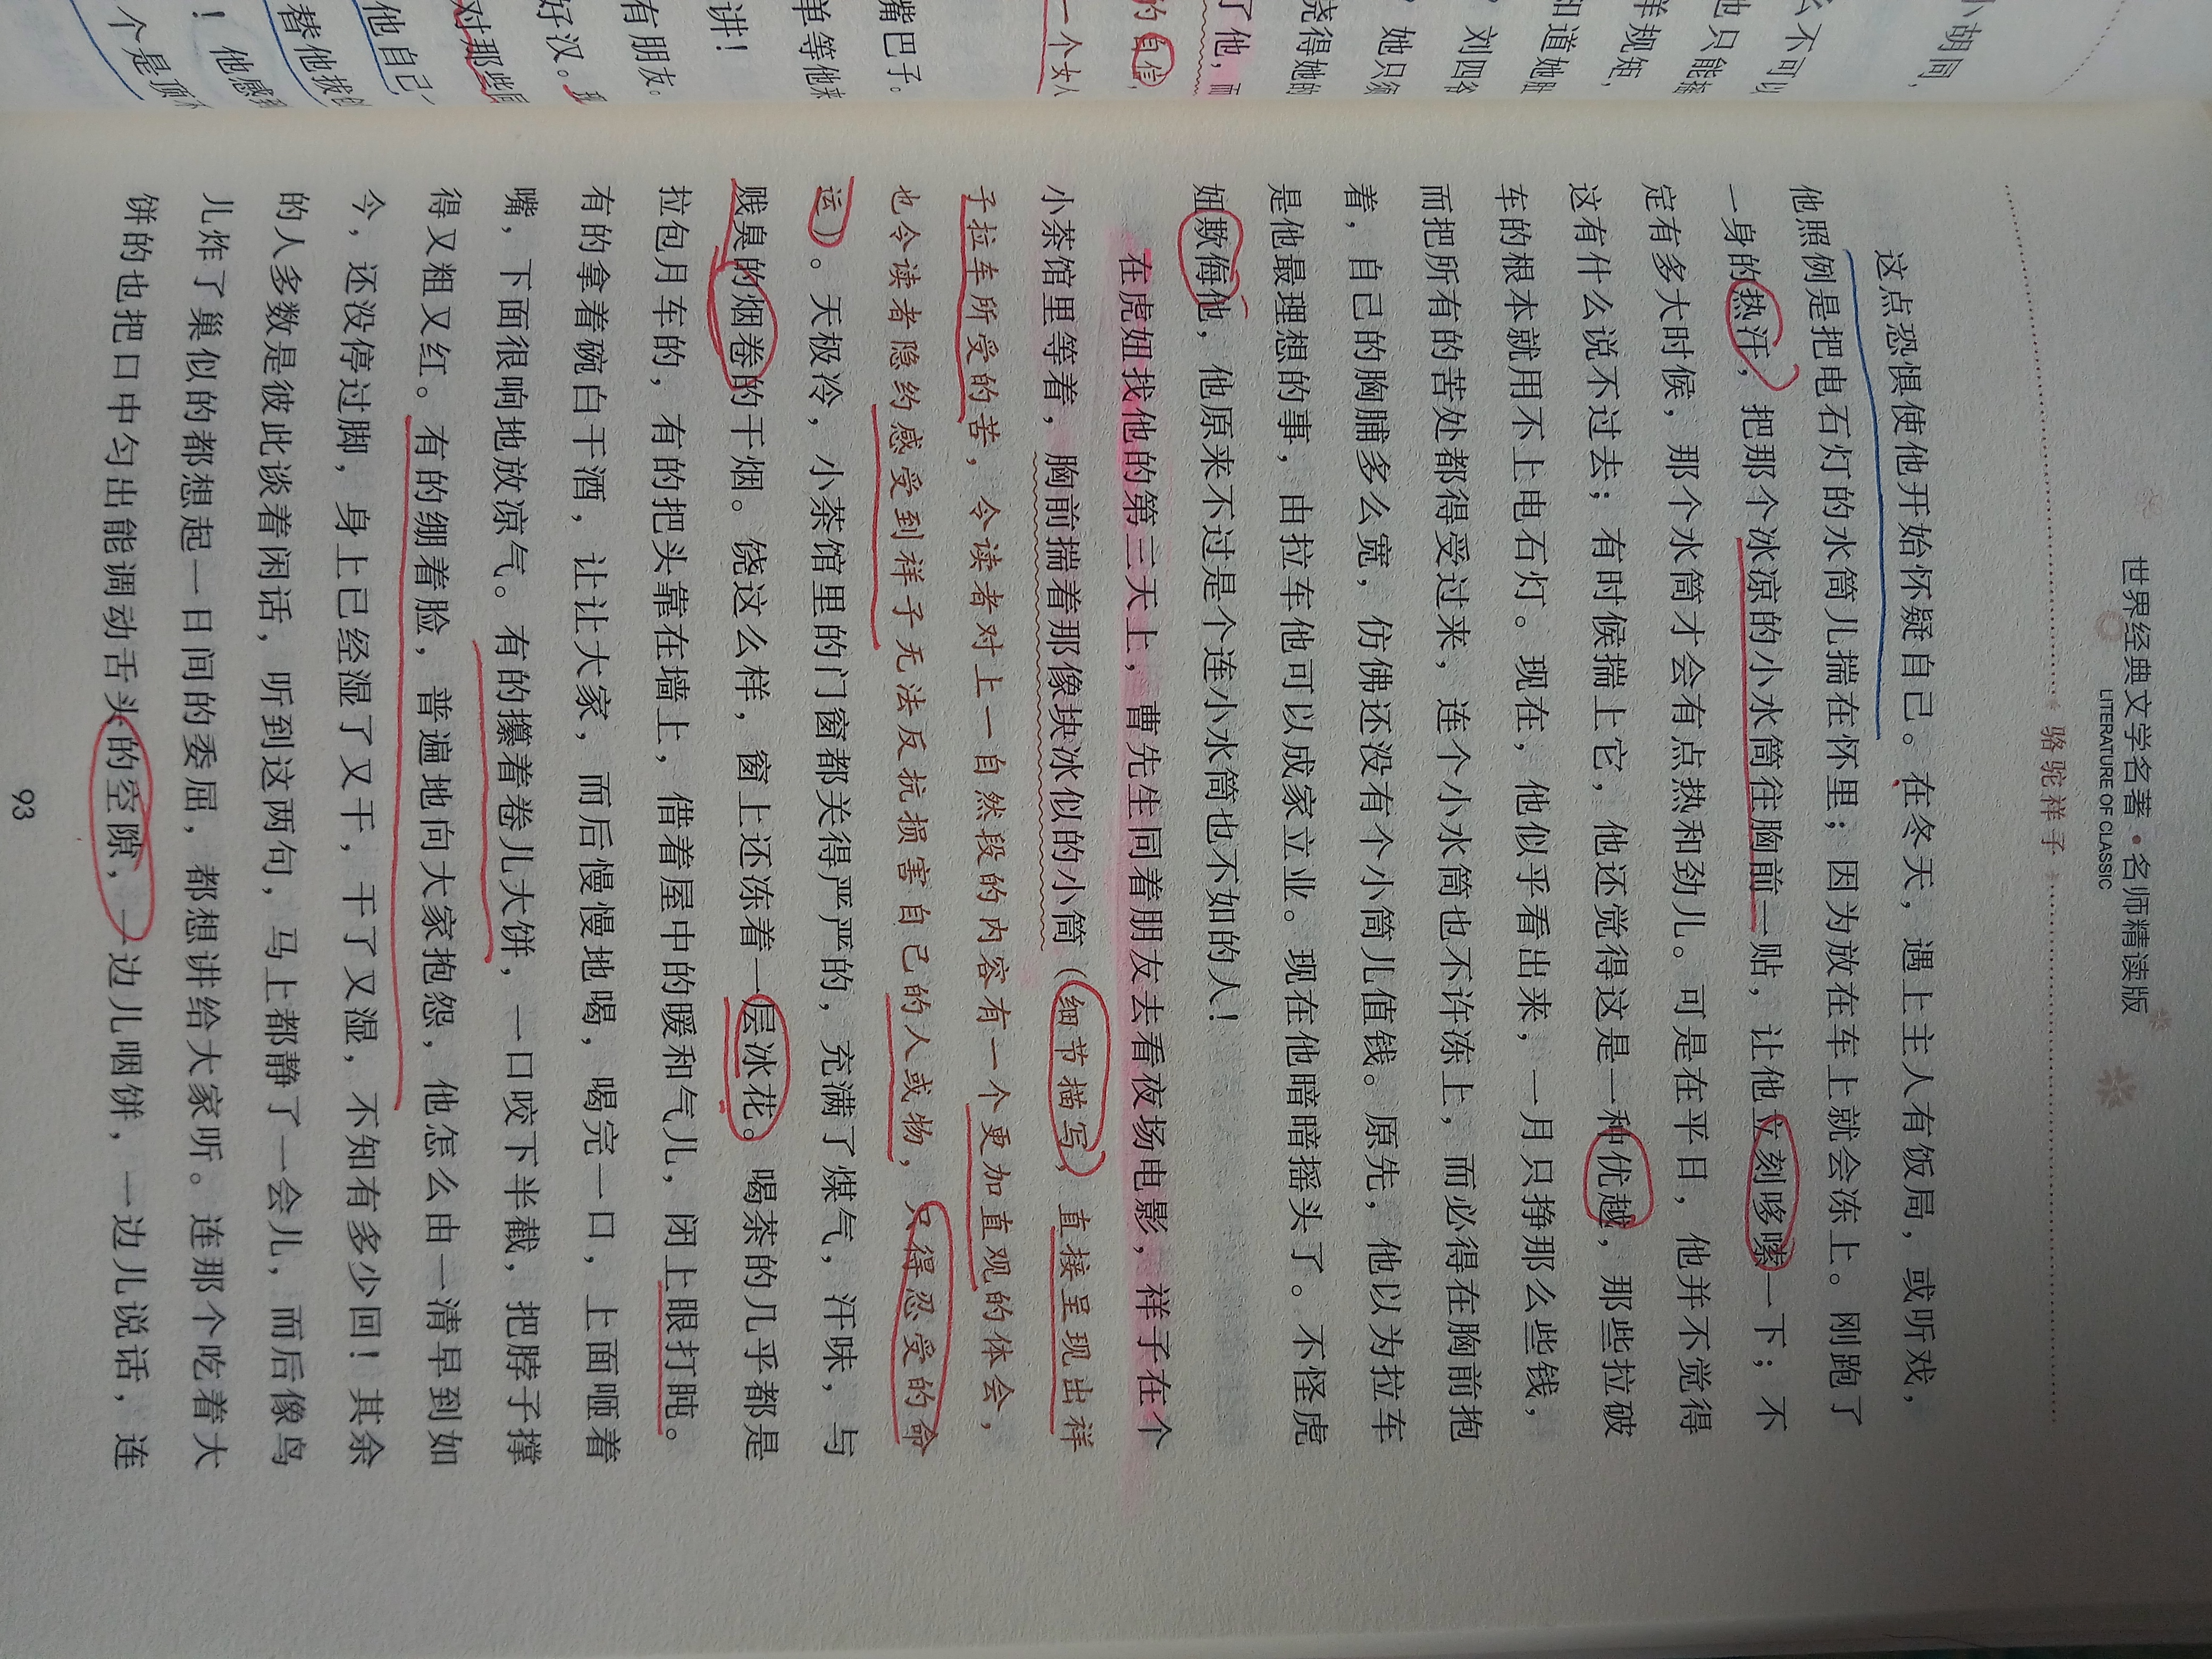 世界经典文学名著·名师精读版
LITERATURE OF CLASSIC
骆驼祥子
这点恐惧使他开始怀疑自己。在冬天，遇上主人有饭局，或听戏，
他照例是把电石灯的水筒儿揣在怀里；因为放在车上就会冻上。刚跑了
一身的热汗，把那个冰凉的小水筒往胸前一贴，让他立刻哆嗦一下；不
定有多大时候，那个水筒才会有点热和劲儿。可是在平日，他并不觉得
这有什么说不过去；有时候揣上它，他还觉得这是一种优越，那些拉破
车的根本就用不上电石灯。现在，他似乎看出来，一月只挣那么些钱，
而把所有的苦处都得受过来，连个小水筒也不许冻上，而必得在胸前抱
着，自己的胸脯多么宽，仿佛还没有个小筒儿值钱。原先，他以为拉车
是他最理想的事，由拉车他可以成家立业。现在他暗暗摇头了。不怪虎
妞欺侮他，他原来不过是个连小水筒也不如的人！
在虎妞找他的第三天上，曹先生同着朋友去看夜场电影，祥子在个
小茶馆里等着，胸前揣着那像块冰似的小筒（细节描写，直接呈现出祥
子拉车所受的苦，令读者对上一自然段的内容有一个更加直观的体会，
也令读者隐约感受到祥子无法反抗损害自己的人或物，只得忍受的命
运）。天极冷，小茶馆里的门窗都关得严严的，充满了煤气，汗味，与
贱臭的烟卷的干烟。饶这么样，窗上还冻着一层冰花。喝茶的几乎都是
拉包月车的，有的把头靠在墙上，借着屋中的暖和气儿，闭上眼打盹。
有的拿着碗白干酒，让让大家，而后慢慢地喝，喝完一口，上面咂着
嘴，下面很响地放凉气。有的攥着卷儿大饼，一口咬下半截，把脖子撑
得又粗又红。有的绷着脸，普遍地向大家抱怨，他怎么由一清早到如
今，还没停过脚，身上已经湿了又干，干了又湿，不知有多少回！其余
的人多数是彼此谈着闲话，听到这两句，马上都静了一会儿，而后像鸟
儿炸了巢似的都想起一日间的委屈，都想讲给大家听。连那个吃着大
饼的也把口中匀出能调动舌头的空隙，一边儿咽饼，一边儿说话，连
93
小胡同，
么不可以
他只能
羊规矩，
知道她
？刘四爷
？她只须
绕得她的
了他，而
的自信，
一个女人
嘴巴子。
单等他来
讲！
有朋友。
好汉。
对那些
他自己
替他拔
！他感
个是顶